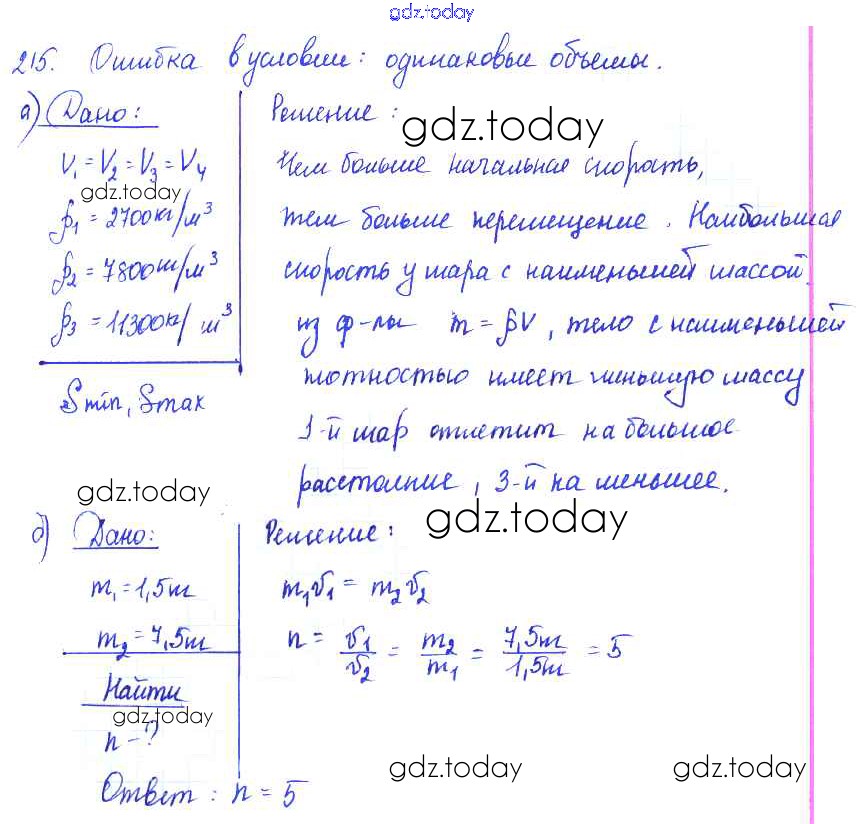 gdz.today
215. Ошибка в условии: одинаковые объемы.
а) Дано:
V₁ = V₂ = V₃ = V₄
gdz.today
ρ₁ = 2700 кг/м³
ρ₂ = 7800 кг/м³
ρ₃ = 11300 кг/м³
Smin, Smax
Решение:
gdz.today
Чем больше начальная скорость,
тем больше перемещение. Наибольшая
скорость у шара с наименьшей массой.
из ф-лы m = ρV, тело с наименьшей
плотностью имеет меньшую массу
1-й шар отлетит на большое
расстояние, 3-й на меньшее.
gdz.today
gdz.today
б) Дано:
m₁ = 1,5т
m₂ = 7,5т
Найти
gdz.today
n - ?
Решение:
m₁v₁ = m₂v₂
n = v₁/v₂ = m₂/m₁ = 7,5т/1,5т = 5
gdz.today
gdz.today
Ответ: n = 5